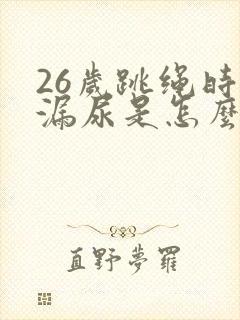 26歲跳绳時
漏尿是怎麼
直野夢羅